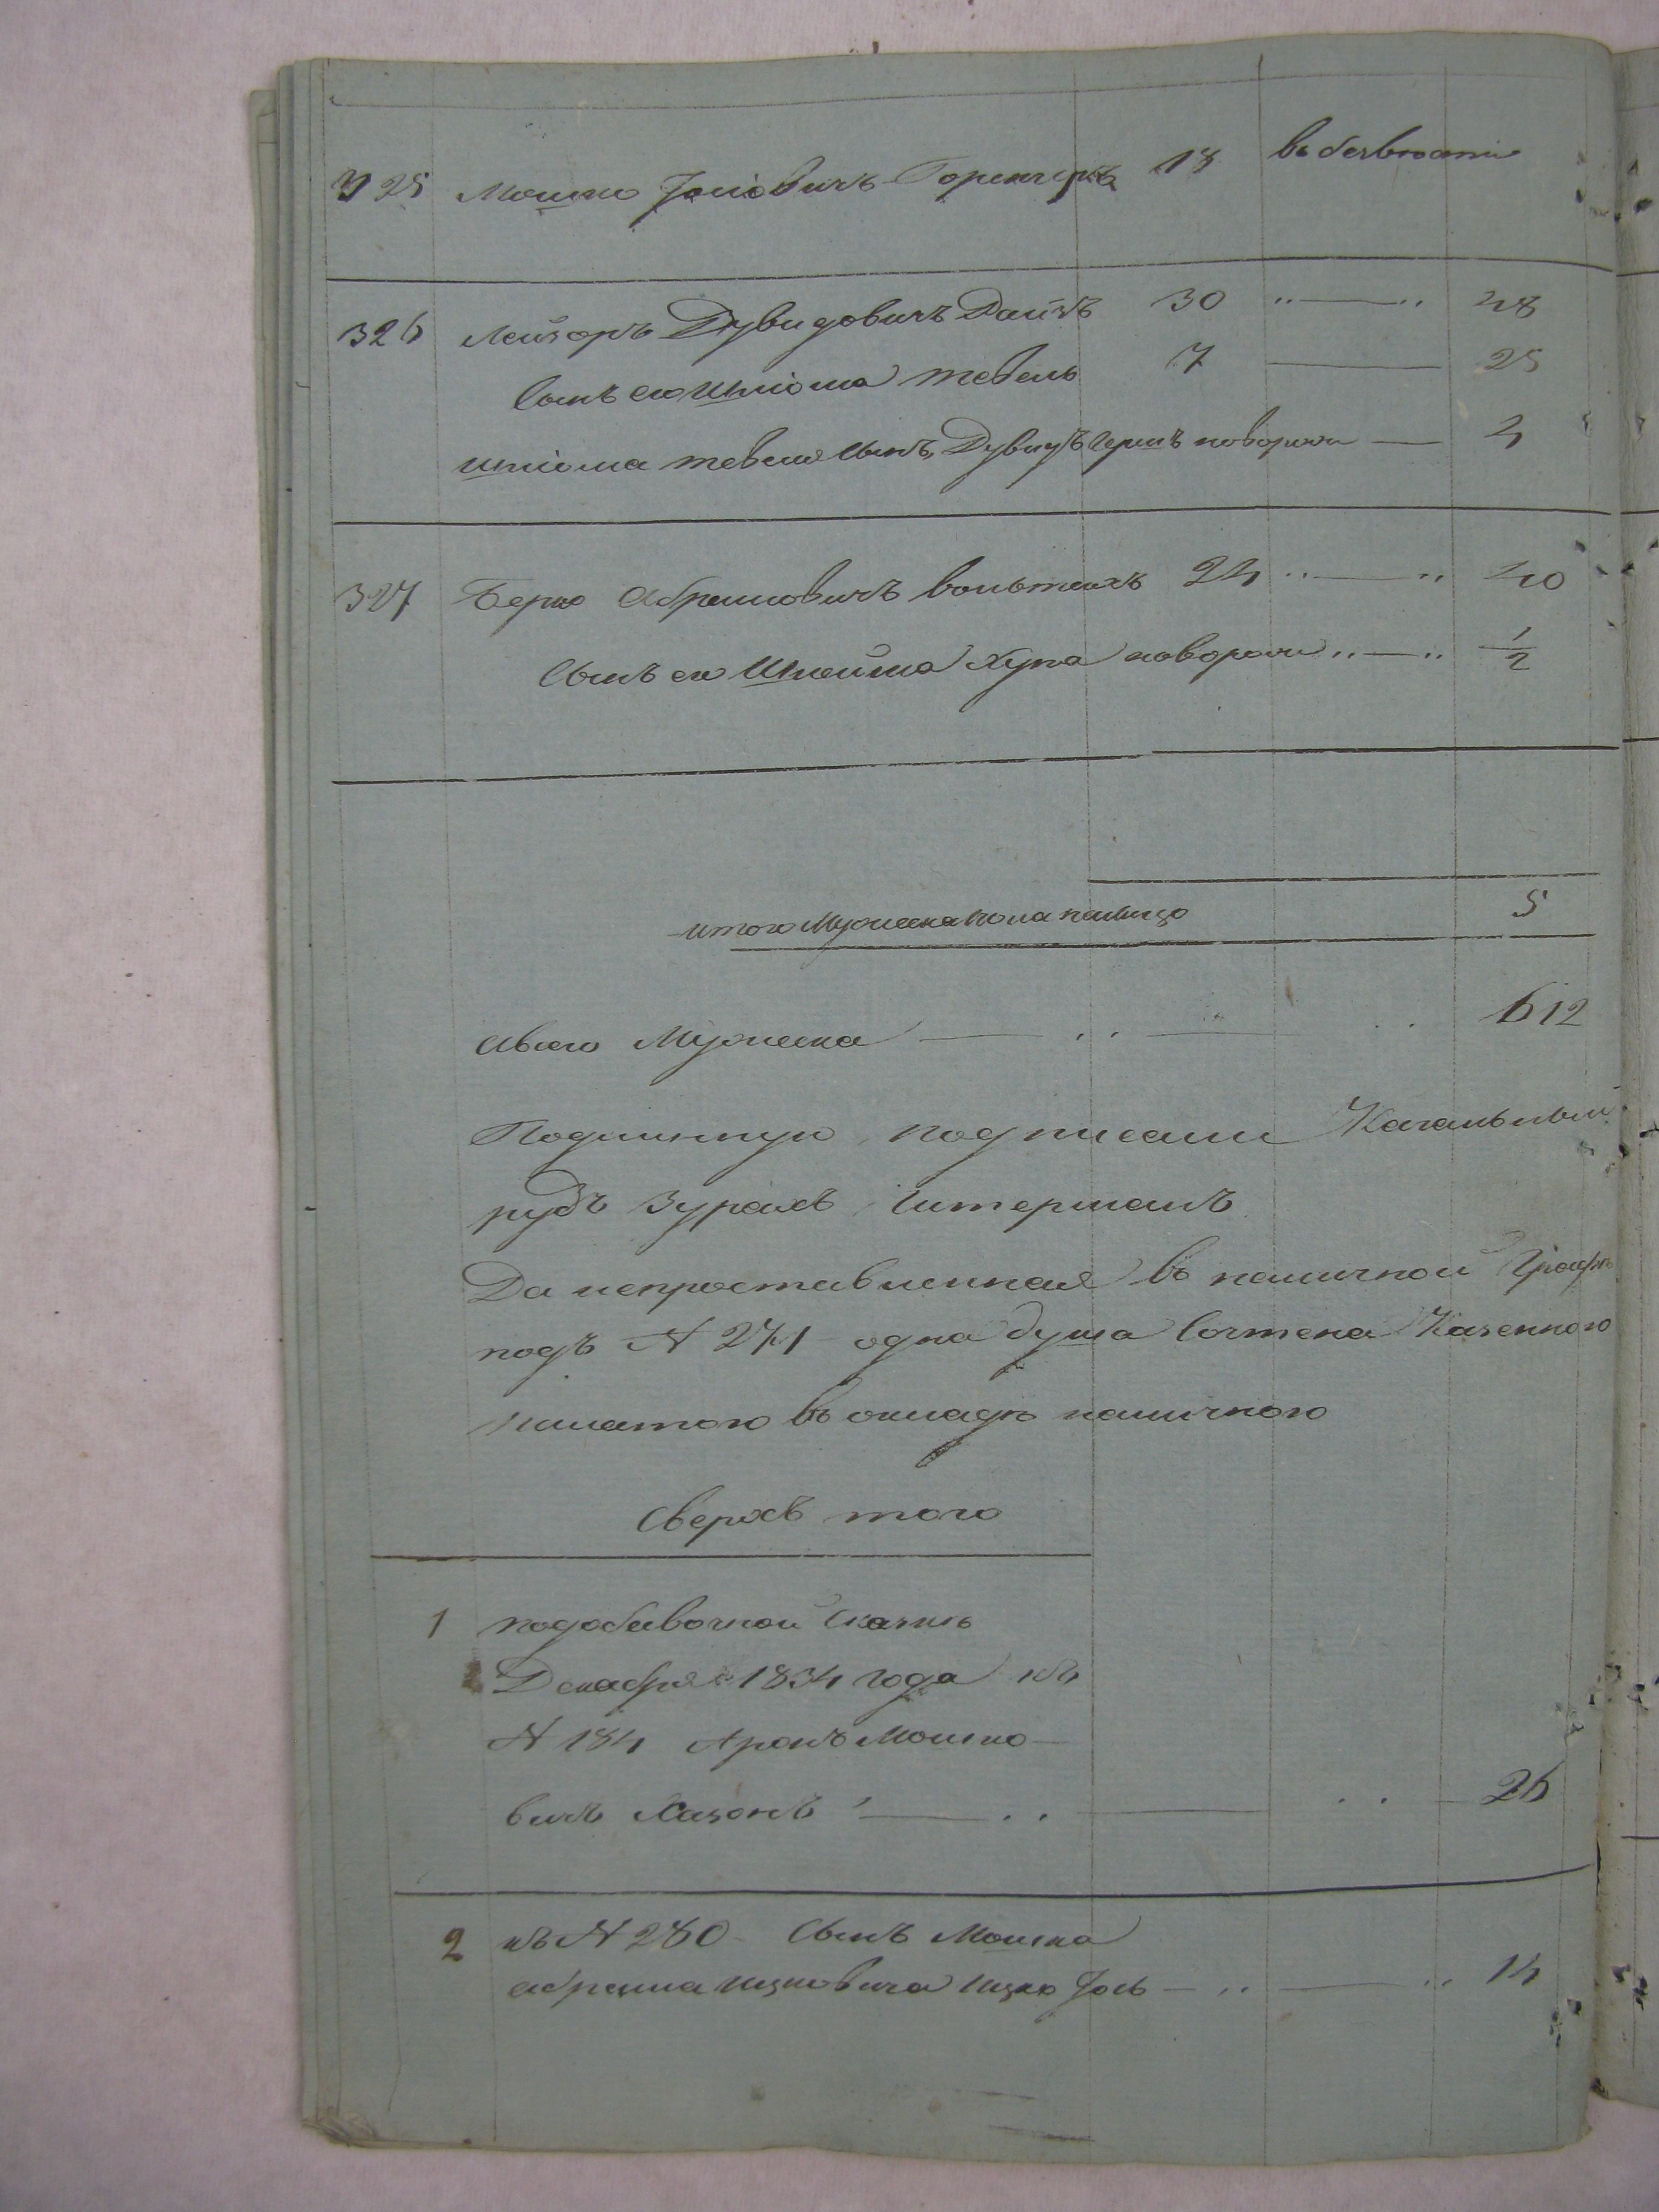 325 Мошко Іосіовичъ 18 въ безвестной
326 Лейзоръ Дувидовичъ Дайчъ 30 48
Сынъ его Шліома Тевель 7 25
Шліома Тевеля сынъ Дувидъ Гершъ новорож 4
327 Берко Абрамовичъ Вольтахъ 24 40
Сынъ его Шлейма Хуна новорож 1/2
итого Мужеска пола налицо 5
А всего Мужеска 612
Подлинную подписали Кагальный
рубъ Зурахъ Штерманъ
Да непроставленная въ наличной Графѣ
подъ N 271 одна душа сочтена Казенною
палатою въ окладъ наличною
Сверхъ того
1 по добавочной сказкѣ
Декабря 1834 года
N 184 Аронъ Мошко-
вичъ Хазонъ 26
2 къ N 280 Сынъ Мошка
Абрама Ицковича Ицко Іось 14